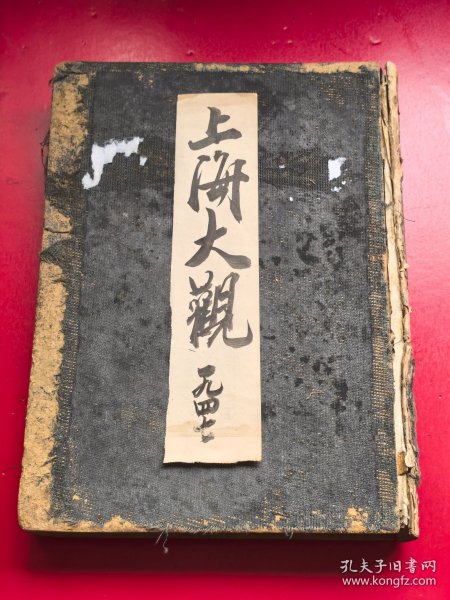 上海大觀
一九四七
孔夫子旧书网
www.kongfz.com